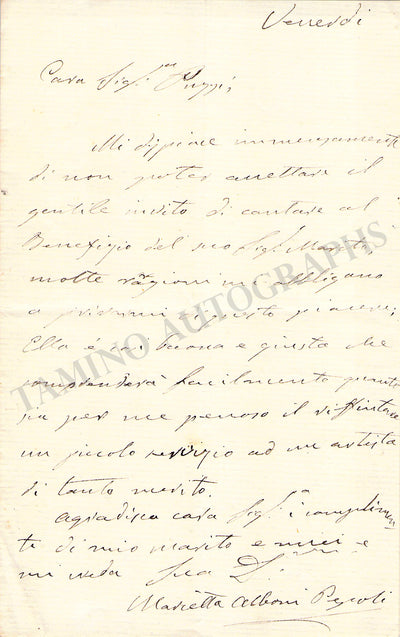 Venerdì
Cara Sig.ra Puzzi,
Mi dispiace immensamente
di non poter accettare il
gentile invito di cantare al
Benefizio del suo Sig. Marito
molte ragioni mi obbligano
a privarmi di questo piacere;
Ella è sì buona e giusta che
comprenderà facilmente quanto
sia per me penoso il rifiutare
un piccolo servizio ad un artista
di tanto merito.
Agradisca cara Sig.a i complimen
ti di mio marito e miei e
mi creda Sua
Marietta Alboni Pepoli
TAMINO AUTOGRAPHS